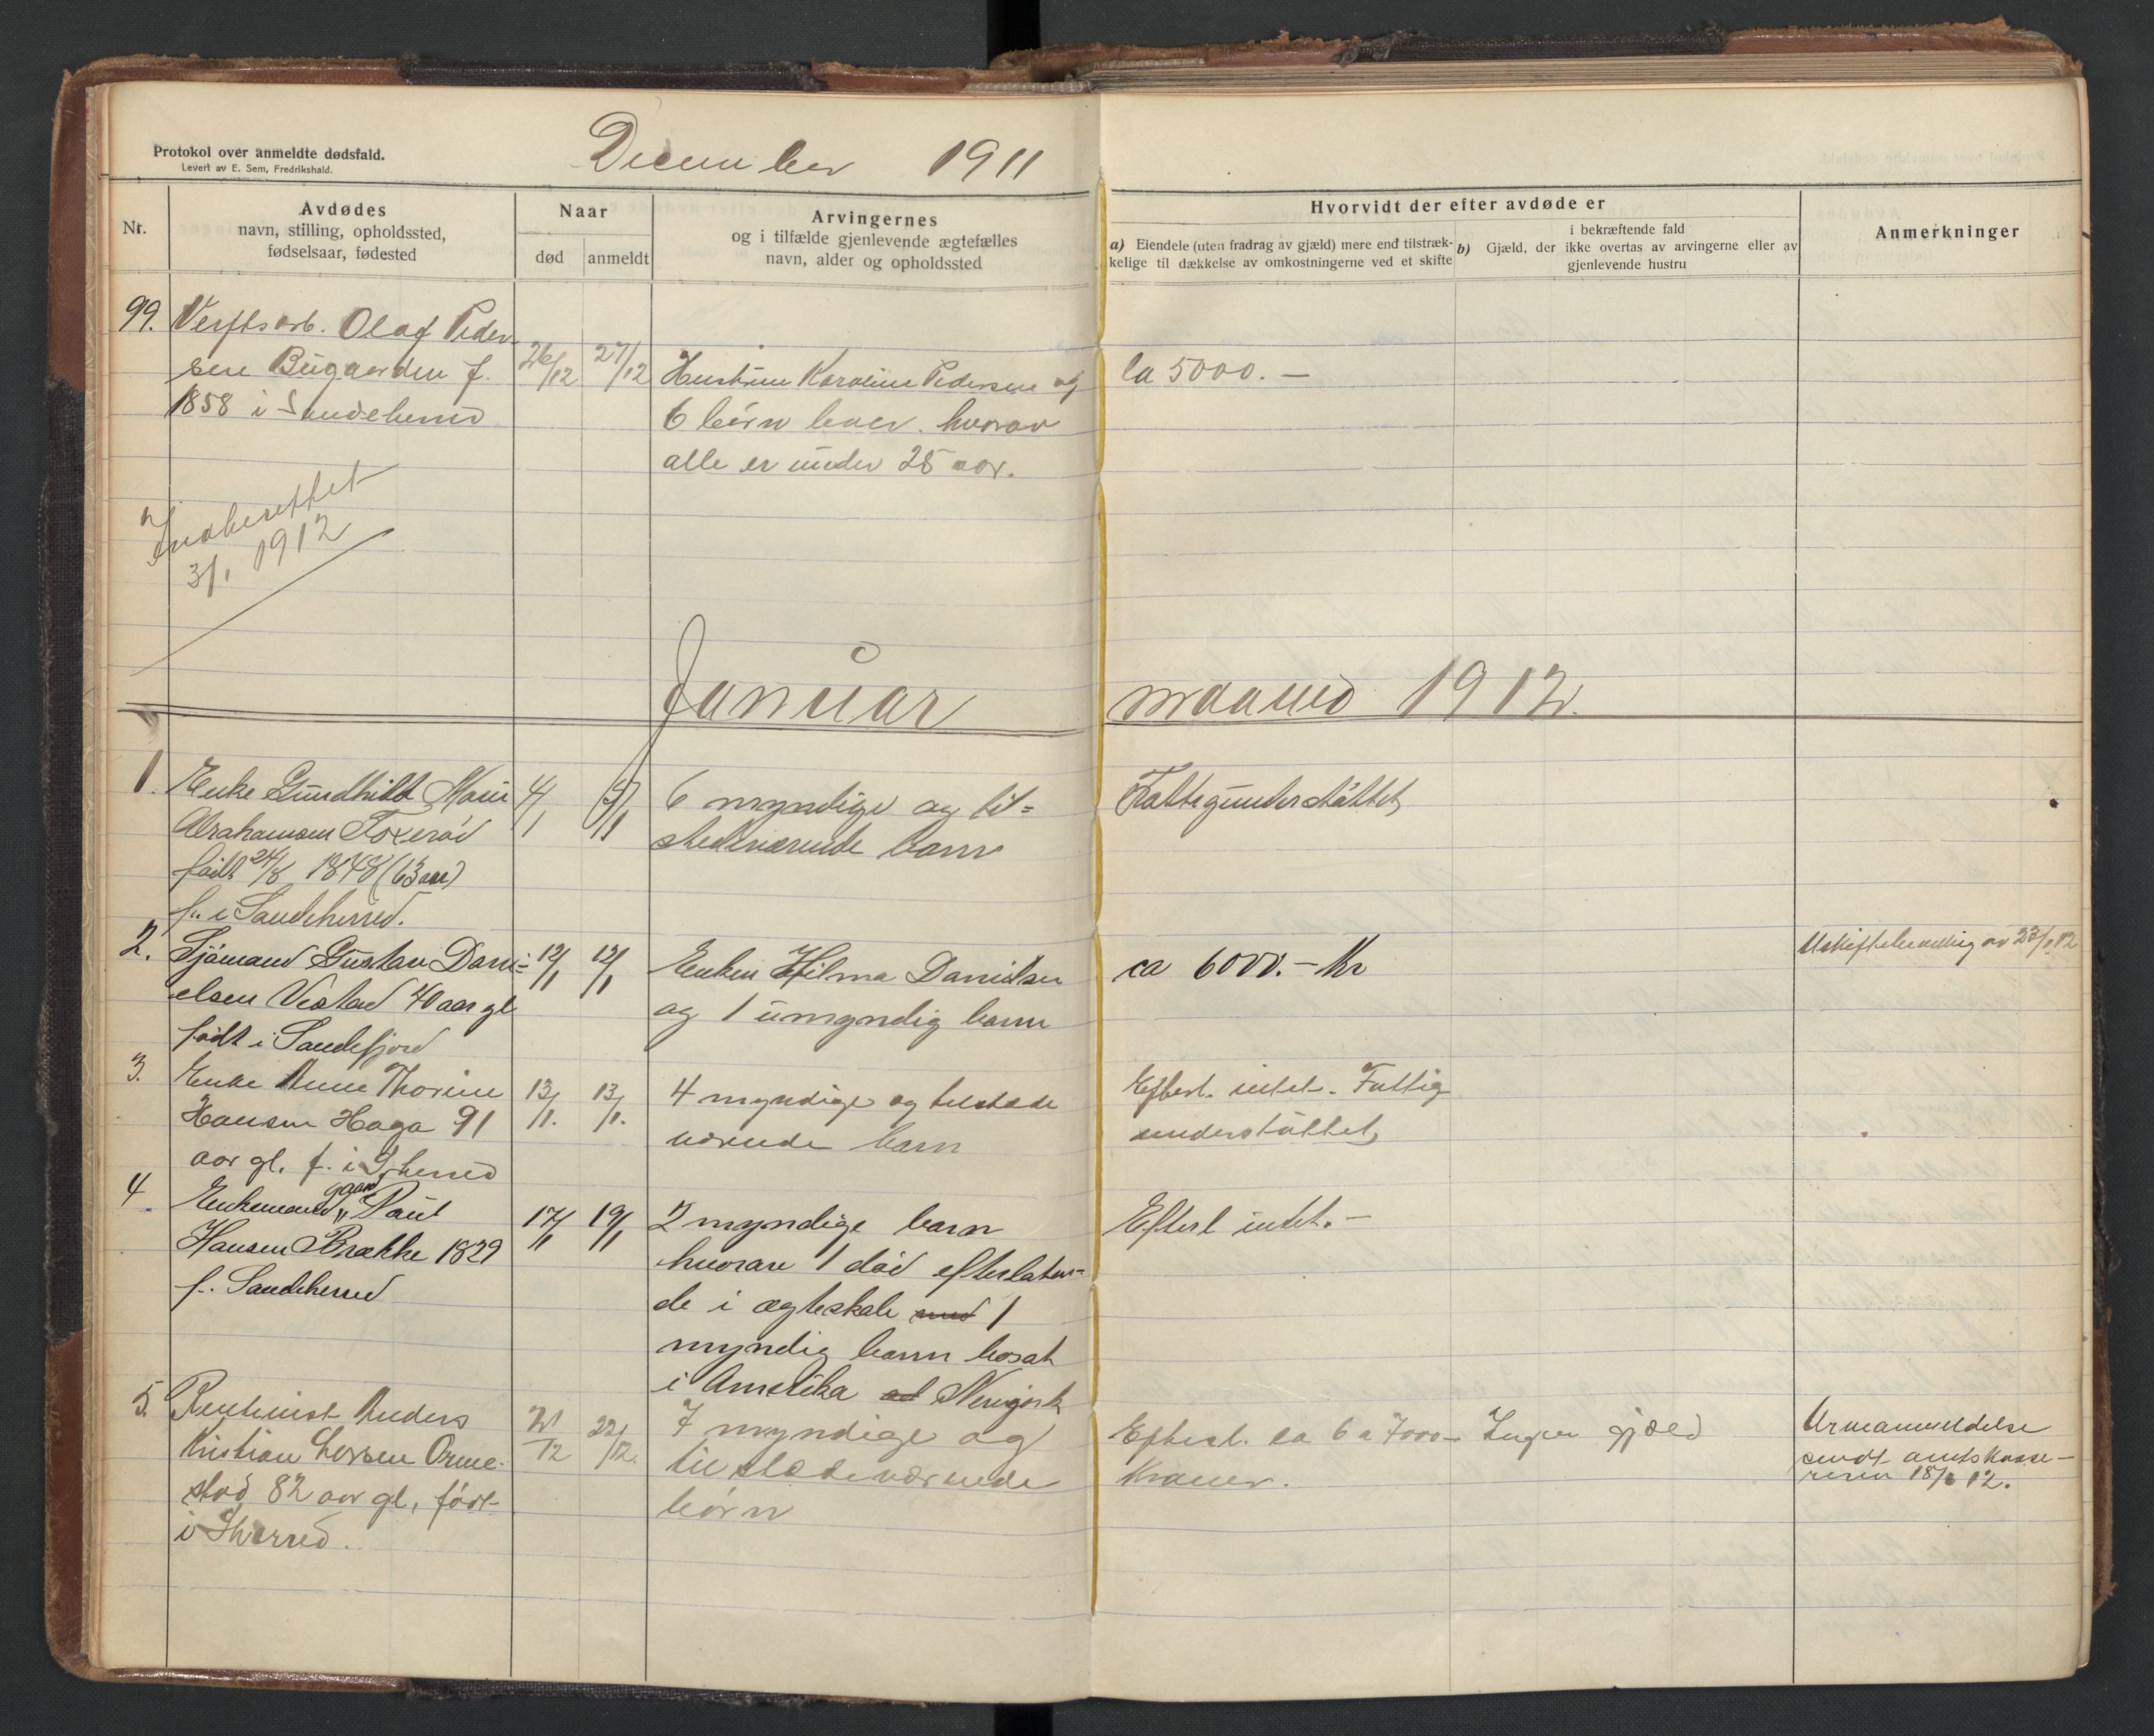 Protokol over anmeldte dødsfald.
Levert av E. Sem, Fredrikshald.
December 1911
Nr.
Avdødes
navn, stilling, opholdssted,
fødselsaar, fødested
Naar
død
anmeldt
Arvingernes
og i tilfælde gjenlevende ægtefælles
navn, alder og opholdssted
Hvorvidt der efter avdøde er
a) Eiendele (uten fradrag av gjæld) mere end tilstræk-
kelige til dækkelse av omkostningerne ved et skifte
i bekræftende fald
b) Gjæld, der ikke overtas av arvingerne eller av
gjenlevende hustru
Anmerkninger
99. Verftsarb. Olaf Peder-
sen Bugaarden f.
1858 i Sandeherred
26/12
27/12
Hustruen Karoline Pedersen og
6 børn lever. hvorav
alle er under 25 aar.
Ca 5000.-
Indberettet
3/1 1912
Januar maaned 1912.
1. Enke Gundhild Marie
Abrahamsen Foxerød
født 24/8 1848 (63 aar)
f. i Sandeherred.
4/1
5/1
6 myndige og til=
stedeværende barn
Fattigunderstøttet
2. Sjømand Gustav Dani-
elsen Vestad 40 aar gl
født i Sandefjord
12/1
12/1
Enken Hilma Danielsen
og 1 umyndig barn
ca 6000.- Kr
Uskiftebevilling av 23/1 12
3. Enke Anne Thorine
Hansen Haga 91
aar gl. f. i Sherred
13/1.
13/1.
4 myndige og tilstede
værende barn
Efterl. intet. Fattig
understøttet
4 Enkemand gaard " Paul
Hansen Brække 1829
f. Sandeherred
17/1
19/1
2 myndige barn
hvorav 1 død efterlaten-
de i ægteskab med 1
myndig barn bosat
i Amerika ad Newyork
Efterl intet.-
5. Rentenist Anders
Kristian Larsen Orme-
stad 82 aar gl, født
i Sherred.
21/12
22/12.
7 myndige og
tilstedeværende
børn
Efterl. ca 6 a 7000-
Kroner.
Ingen gjæld
Urneanmeldelse
sendt amtskasse-
reren 18/1 12.